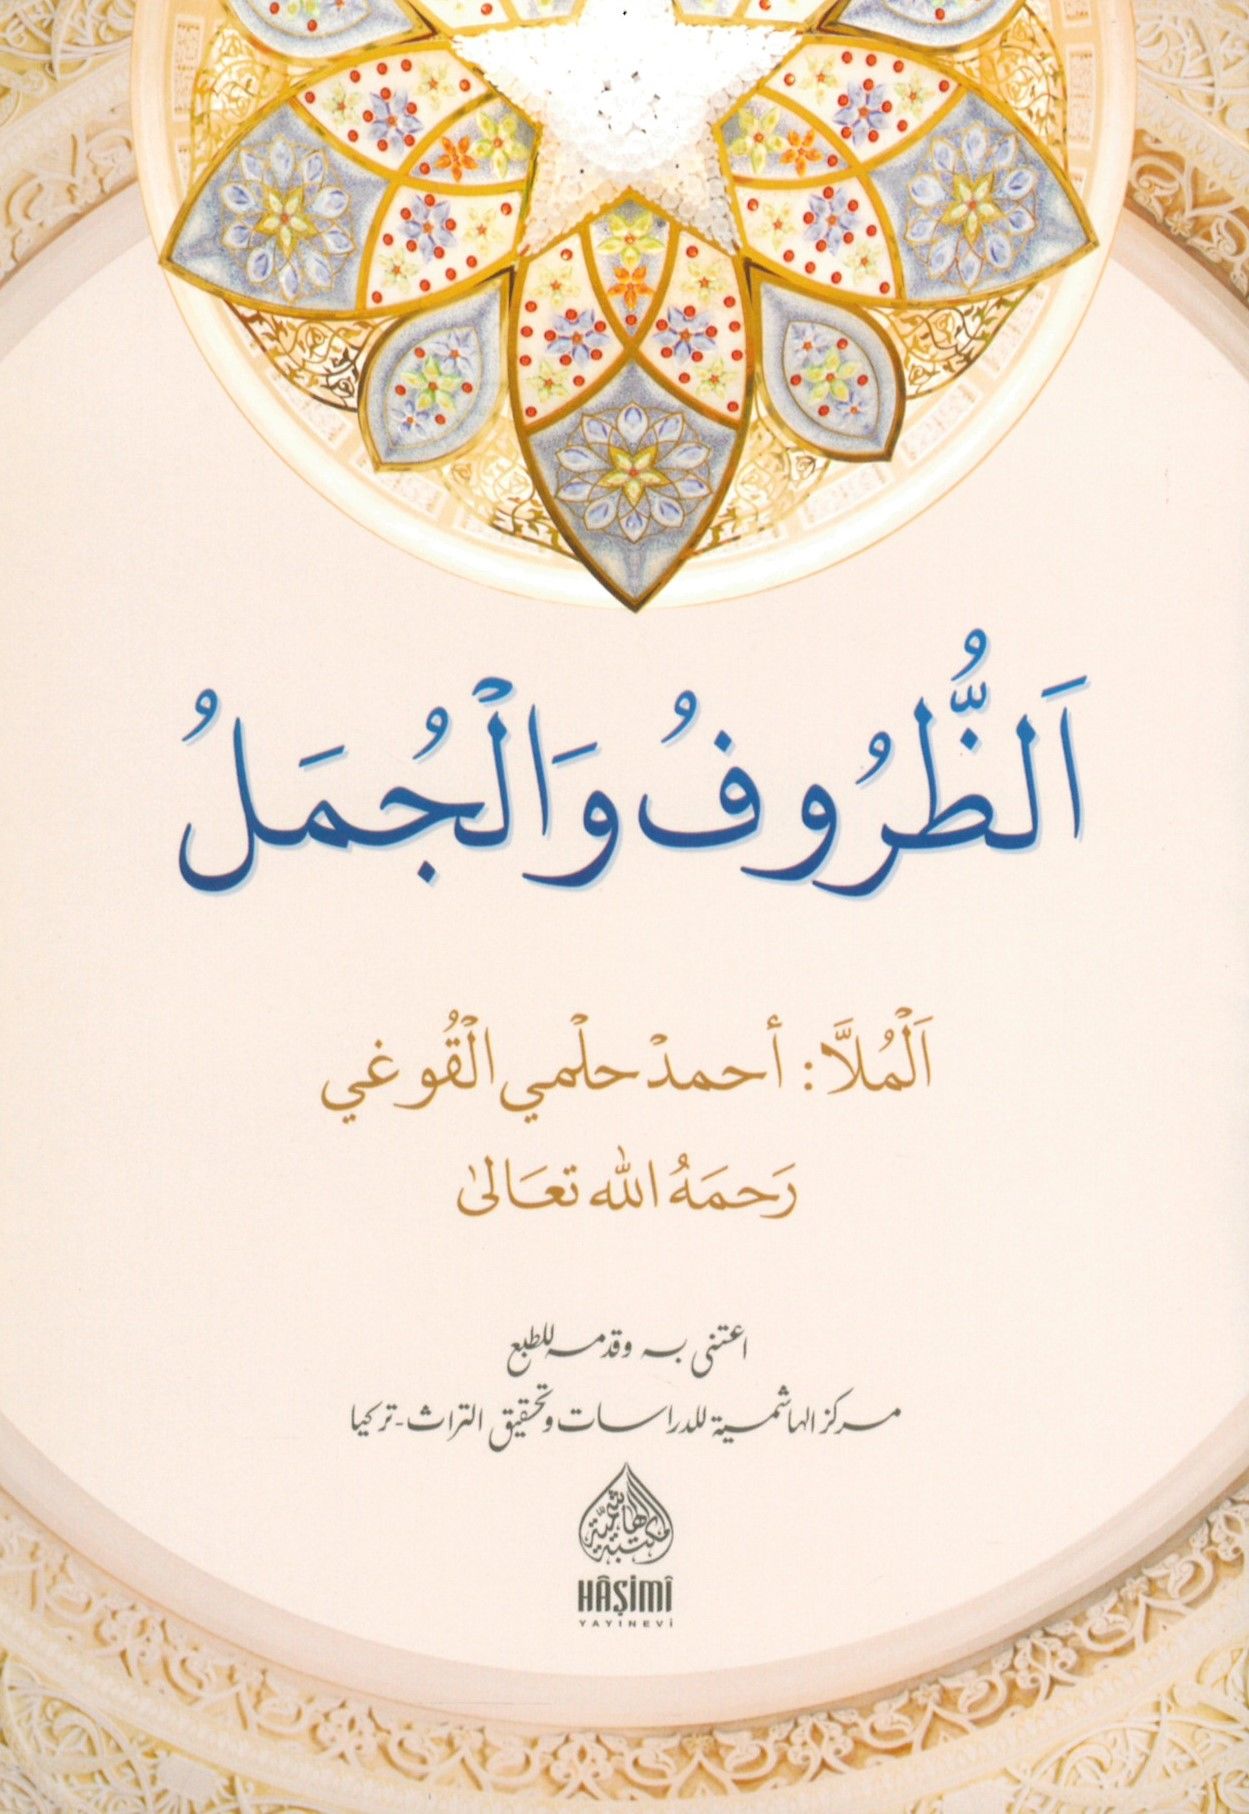 اَلظُّرُوفُ وَالْجُمَلُ
اَلْمُلَّا: أحمدْ حلْمي الْقُوغي
رَحمَهُ الله تعَالىٰ
اعتنى به وقدمه للطبع
مركز الهاشمية للدراسات وتحقيق التراث-تركيا
مكتبة الهاشمية
HÂŞİMÎ
YAYINEVİ